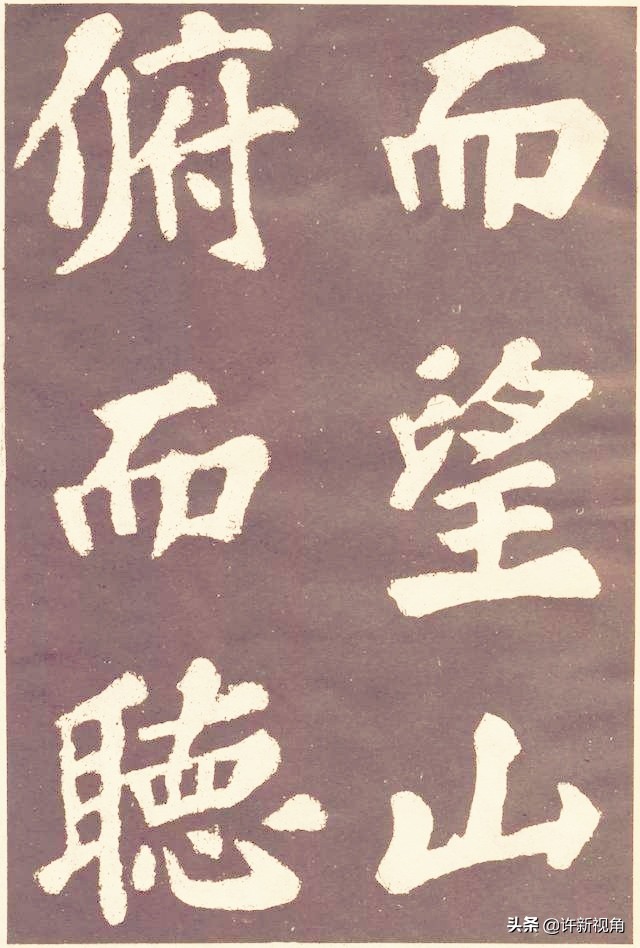 而望山
俯而聽
头条 @许新视角